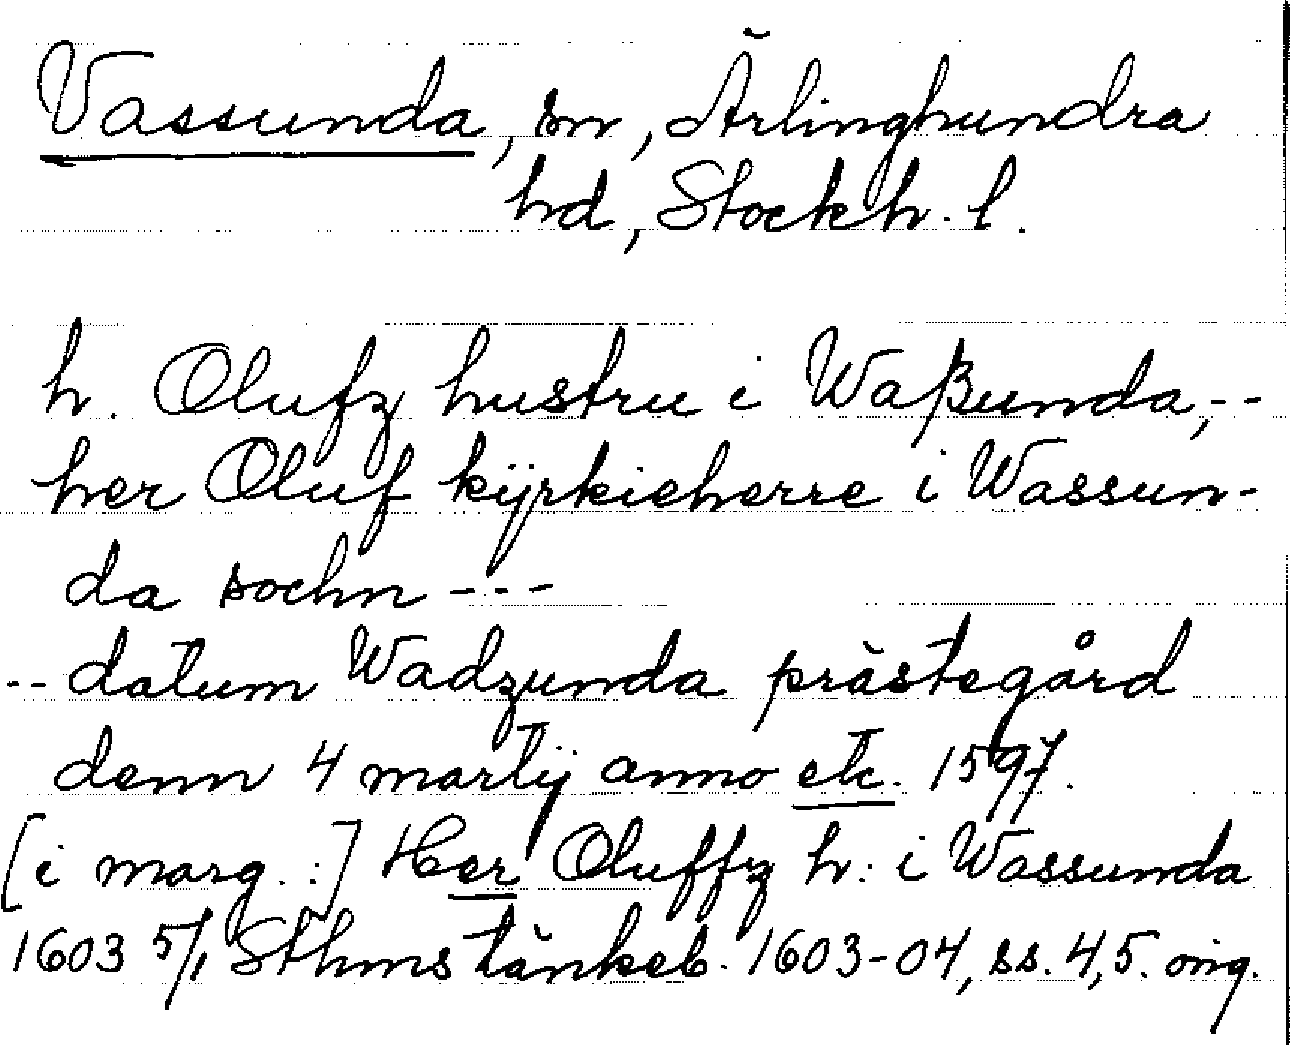 Vassunda, sn, Ärlinghundra
hd, Stockh. l.
h. Olufz hustru i Waßunda,--
her Oluf kijrkieherre i Wassun-
da sochn ---
-- datum Wadzunda prästegård
denn 4 martij anno etc. 1597.
[i marg.:] Her Oluffz h. i Wassunda
1603 5/1 Sthms tänkeb. 1603-04, ss. 4,5. orig.